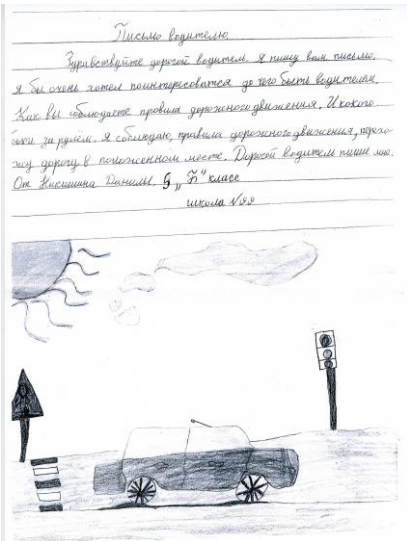 Письмо водителю
Здравствуйте дорогой водитель. Я пишу вам письмо.
Я бы очень хотел поинтересоватся до чего быть водителем.
Как вы соблюдаете правила дорожного движения. И кокого
за рулём. Я соблюдаю, правила дорожного движения, перехо-
жу дорогу в положенном месте. Дорогой водитель пиши мне.
От Никишина Данилы. 5 "Б" класс
школа №99